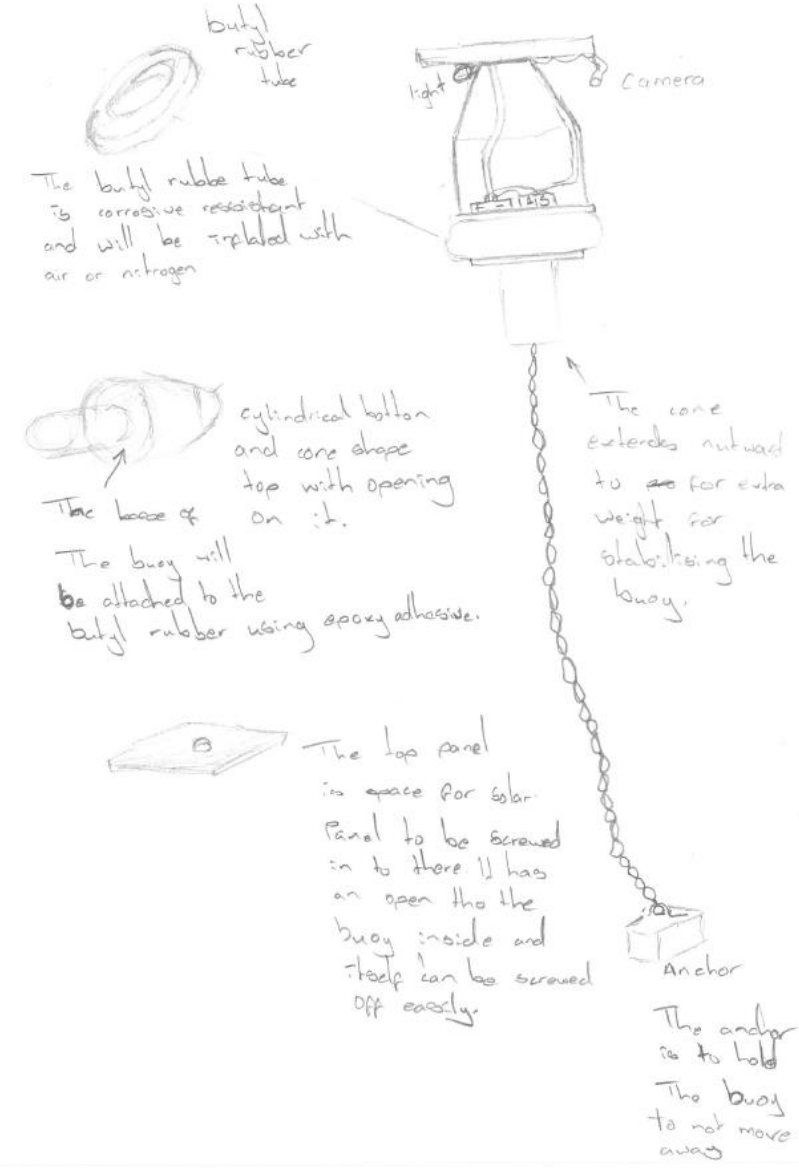 butyl
rubber
tube
light
Camera
The butyl rubbe tube
is corrosive ressistant
and will be inflated with
air or nitrogen
cylindrical botton
and cone shape
top with opening
on it.
The base of
The buoy will
be attached to the
butyl rubber using epoxy adhesive.
The cone
extends outward
to for extra
weight for
stabilising the
buoy.
The top panel
is space for solar
Panel to be screwed
in to there It has
an open tho the
buoy inside and
itself can be screwed
OFF easily.
Anchor
The anchor
is to hold
The buoy
to not move
away